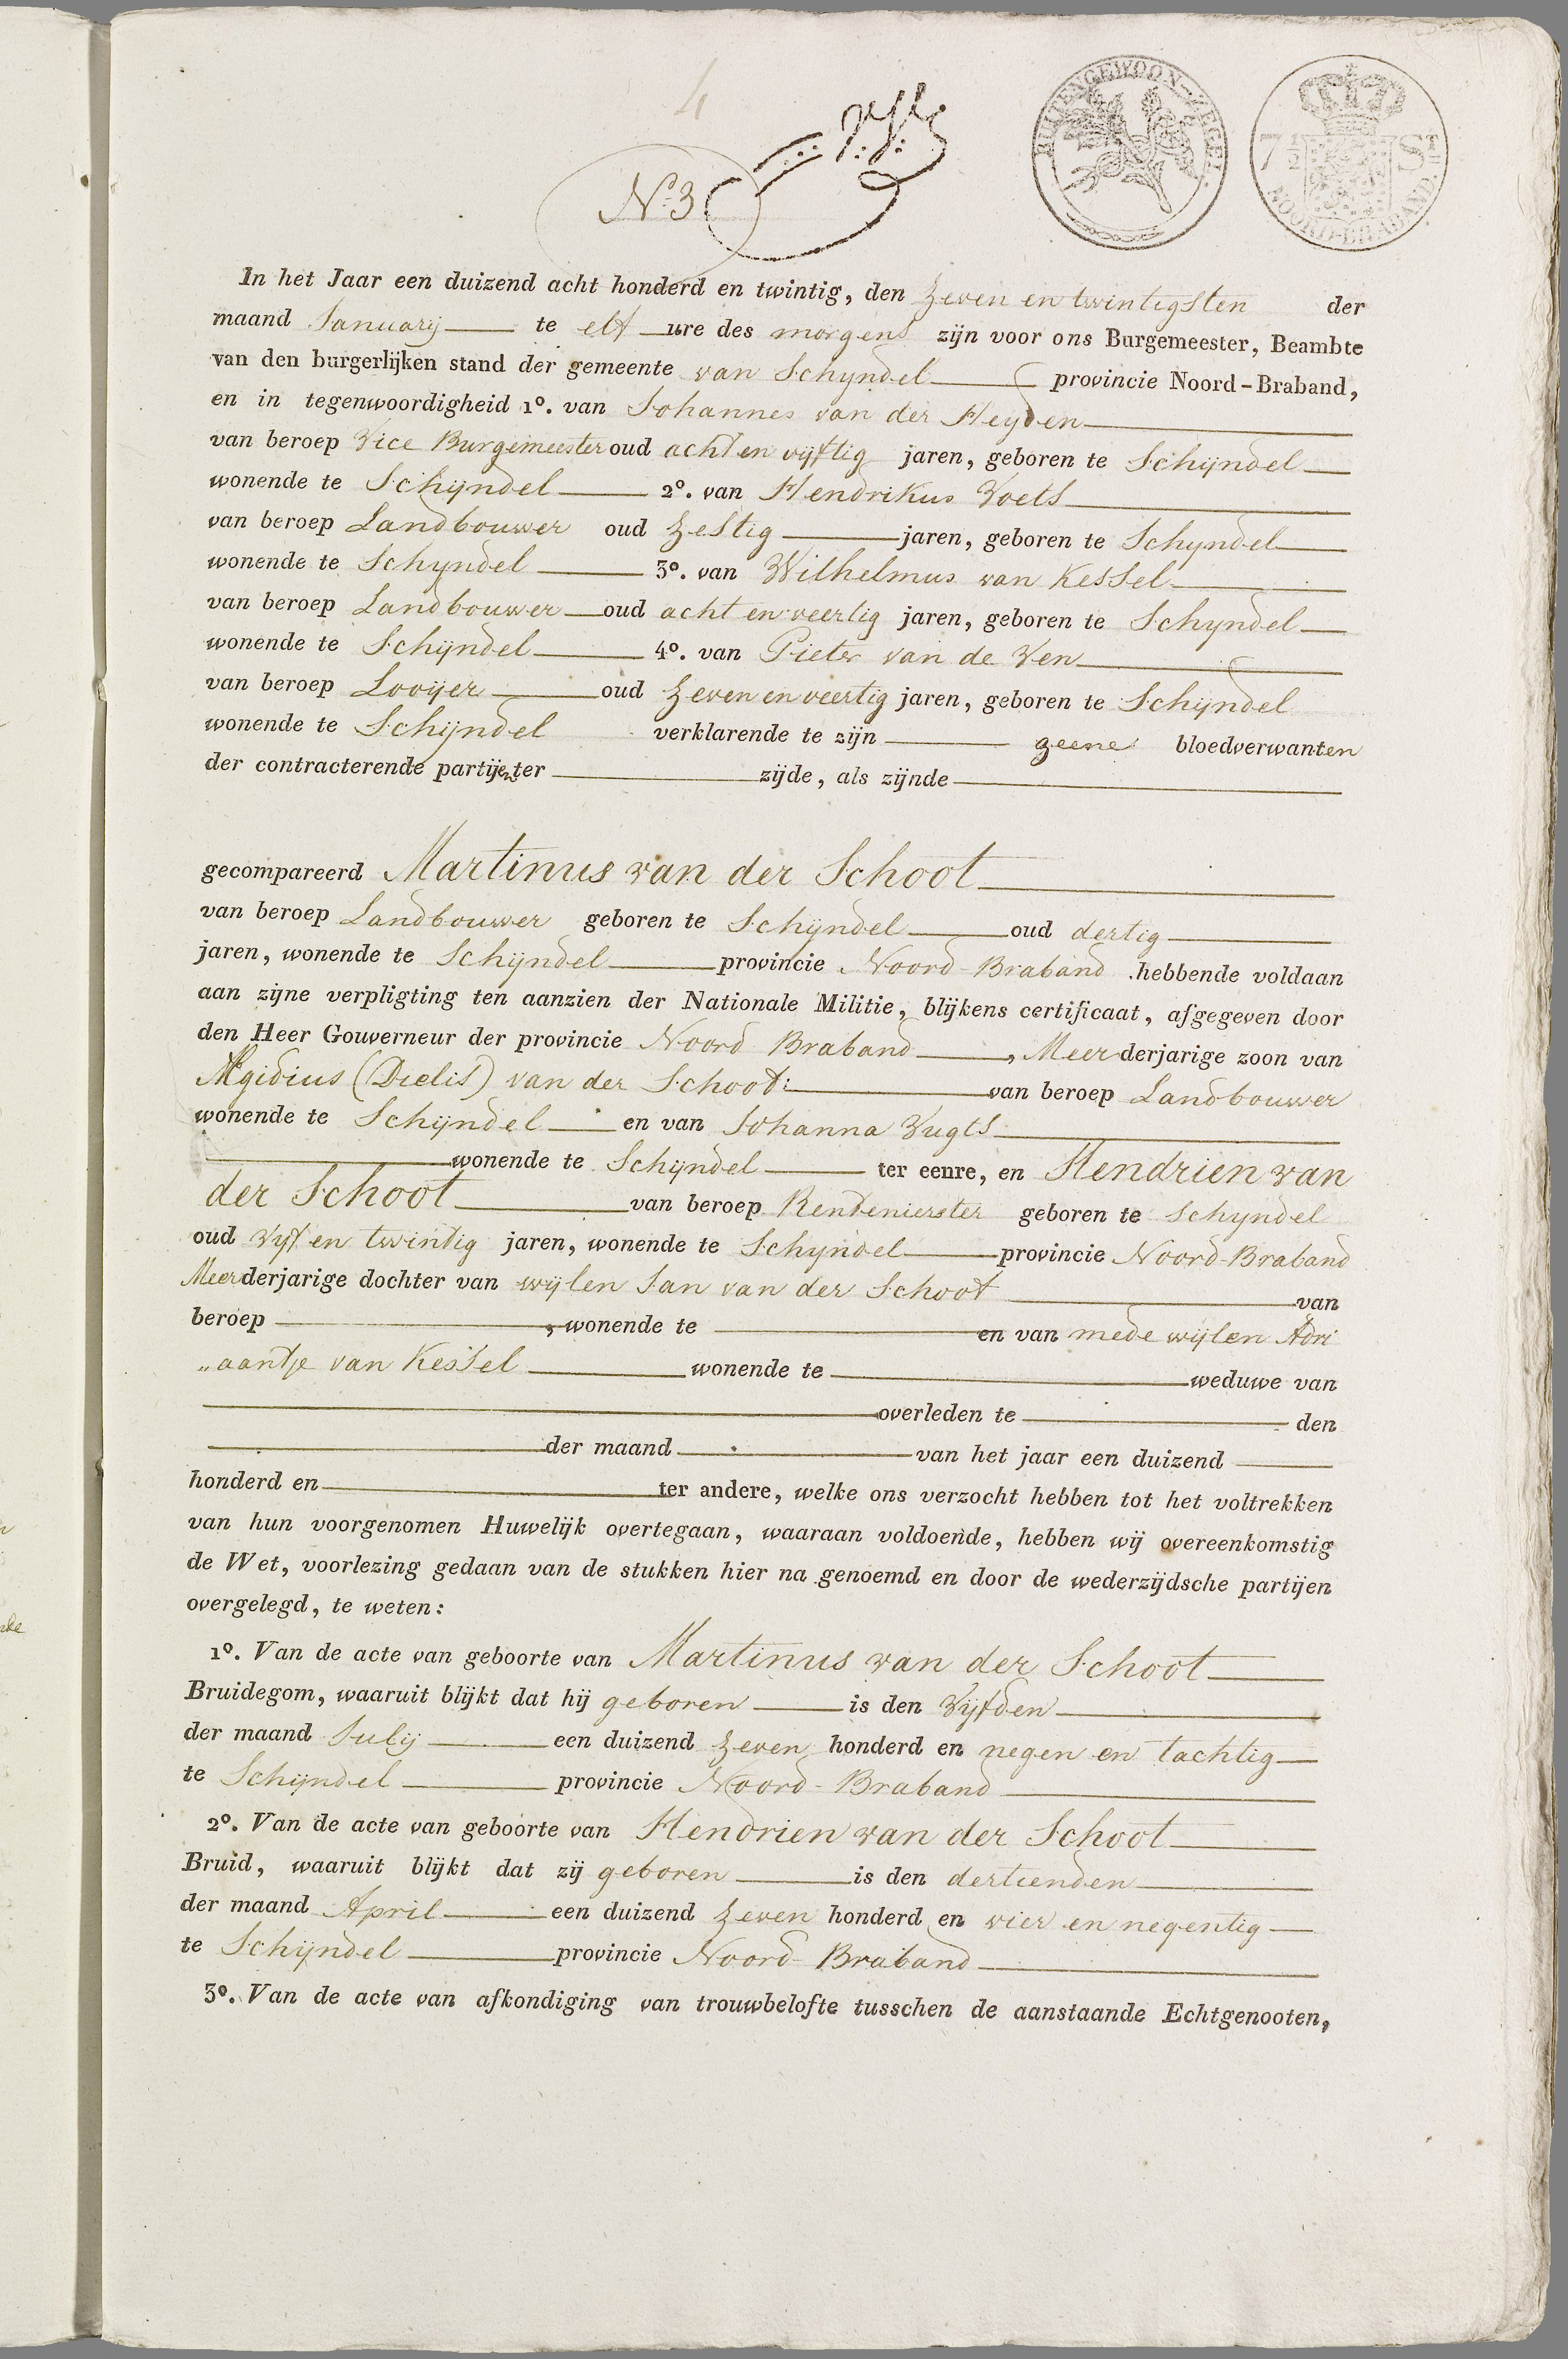 4
N.o 3
BUITENGEWOON-ZEGEL.
7 1/2 St.
NOORD-BRABAND.
In het Jaar een duizend acht honderd en twintig, den zeven en twintigsten der
maand Januarij te elf ure des morgens zijn voor ons Burgemeester, Beambte
van den burgerlijken stand der gemeente van Schyndel provincie Noord-Braband,
en in tegenwoordigheid 1o. van Johannes van der Heyden
van beroep Vice Burgemeester oud acht en vyftig jaren, geboren te Schijndel
wonende te Schijndel 2o. van Hendrikus Voets
van beroep Landbouwer oud zestig jaren, geboren te Schyndel
wonende te Schyndel 3o. van Wilhelmus van Kessel
van beroep Landbouwer oud acht en veertig jaren, geboren te Schyndel
wonende te Schijndel 4o. van Pieter van de Ven
van beroep Looijer oud zeven en veertig jaren, geboren te Schijndel
wonende te Schijndel verklarende te zijn geene bloedverwanten
der contracterende partijen ter zijde, als zijnde
gecompareerd Martinus van der Schoot
van beroep Landbouwer geboren te Schijndel oud dertig
jaren, wonende te Schijndel provincie Noord-Braband hebbende voldaan
aan zijne verpligting ten aanzien der Nationale Militie, blijkens certificaat, afgegeven door
den Heer Gouverneur der provincie Noord Braband, Meerderjarige zoon van
Ægidius (Dielis) van der Schoot: van beroep Landbouwer
wonende te Schijndel en van Johanna Vugts
wonende te Schijndel ter eenre, en Hendrien van
der Schoot van beroep Rendenierster geboren te Schyndel
oud vyf en twintig jaren, wonende te Schyndel provincie Noord-Braband
Meerderjarige dochter van wylen Jan van der Schoot van
beroep , wonende te en van mede wijlen Adri
„aantje van Kessel wonende te weduwe van
overleden te den
der maand van het jaar een duizend
honderd en ter andere, welke ons verzocht hebben tot het voltrekken
van hun voorgenomen Huwelijk overtegaan, waaraan voldoende, hebben wij overeenkomstig
de Wet, voorlezing gedaan van de stukken hier na genoemd en door de wederzijdsche partijen
overgelegd, te weten:
1o. Van de acte van geboorte van Martinus van der Schoot
Bruidegom, waaruit blijkt dat hij geboren is den vyfden
der maand July een duizend zeven honderd en negen en tachtig
te Schijndel provincie Noord-Braband
2o. Van de acte van geboorte van Hendrien van der Schoot
Bruid, waaruit blijkt dat zij geboren is den dertienden
der maand April een duizend zeven honderd en vier en negentig
te Schijndel provincie Noord-Braband
3o. Van de acte van afkondiging van trouwbelofte tusschen de aanstaande Echtgenooten,